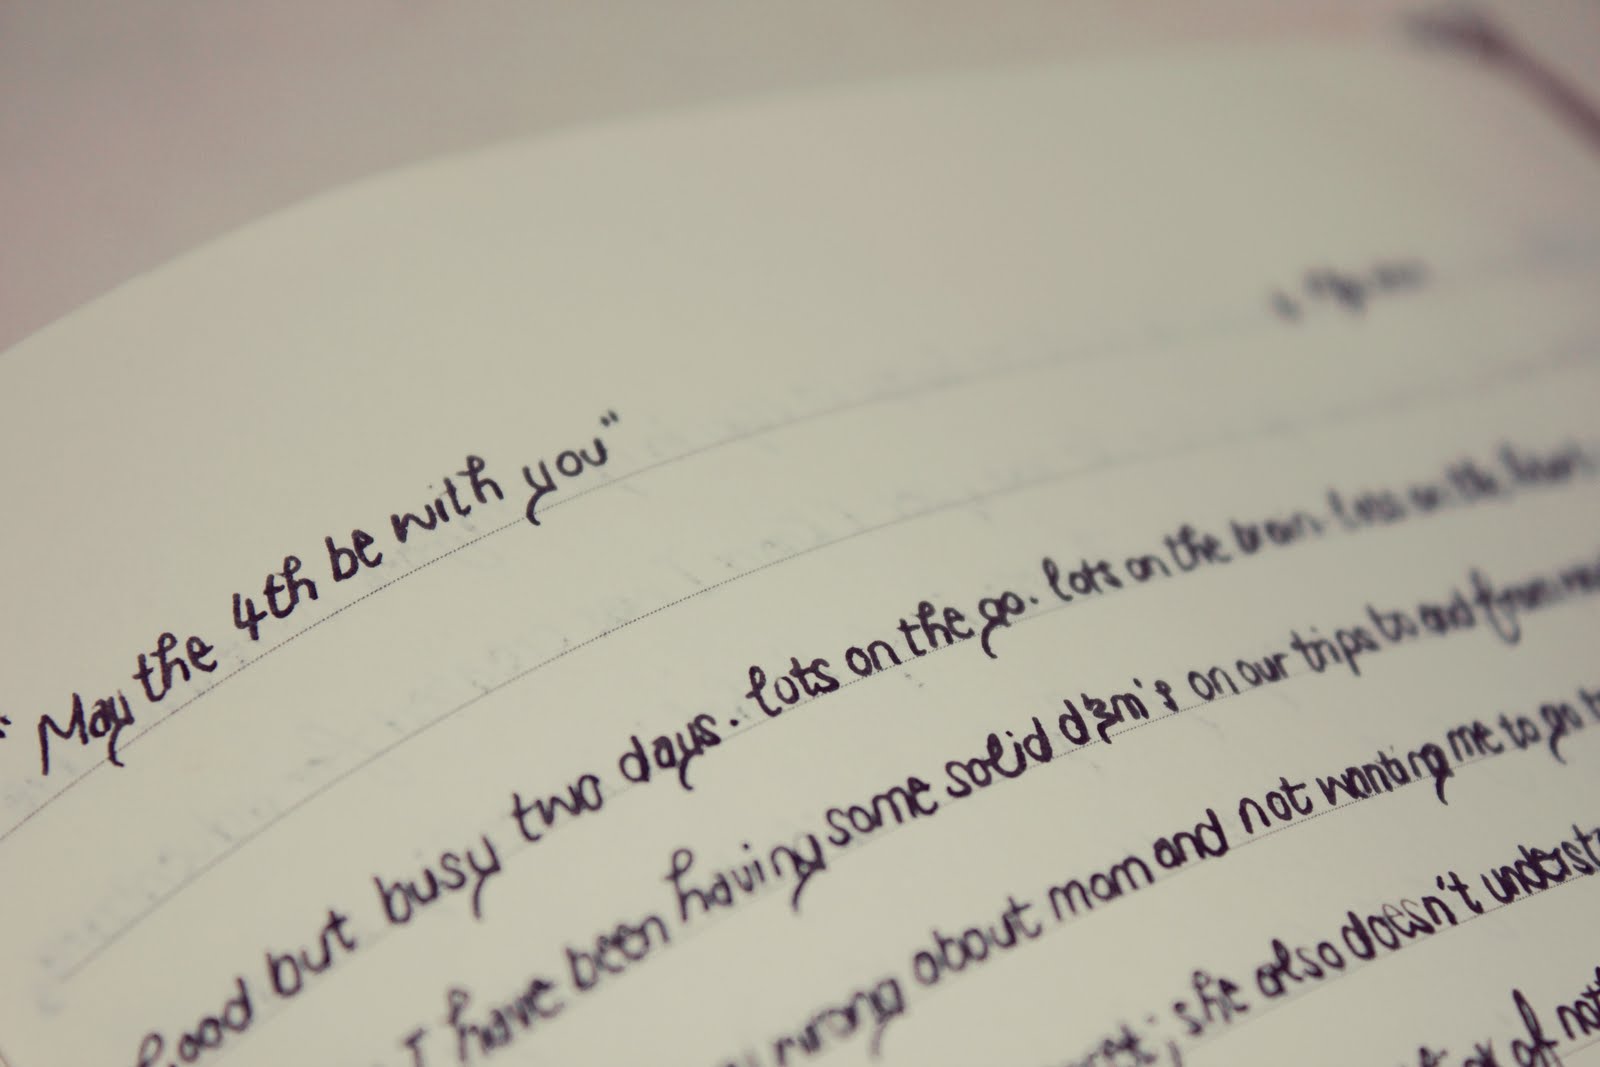 "May the 4th be with you"
Good but busy two days. lots on the go. lots on the brain. lots on the
I have been having some solid d&m's on our trips to and from
wrong about mom and not wanting me to go
; she also doesn't
of